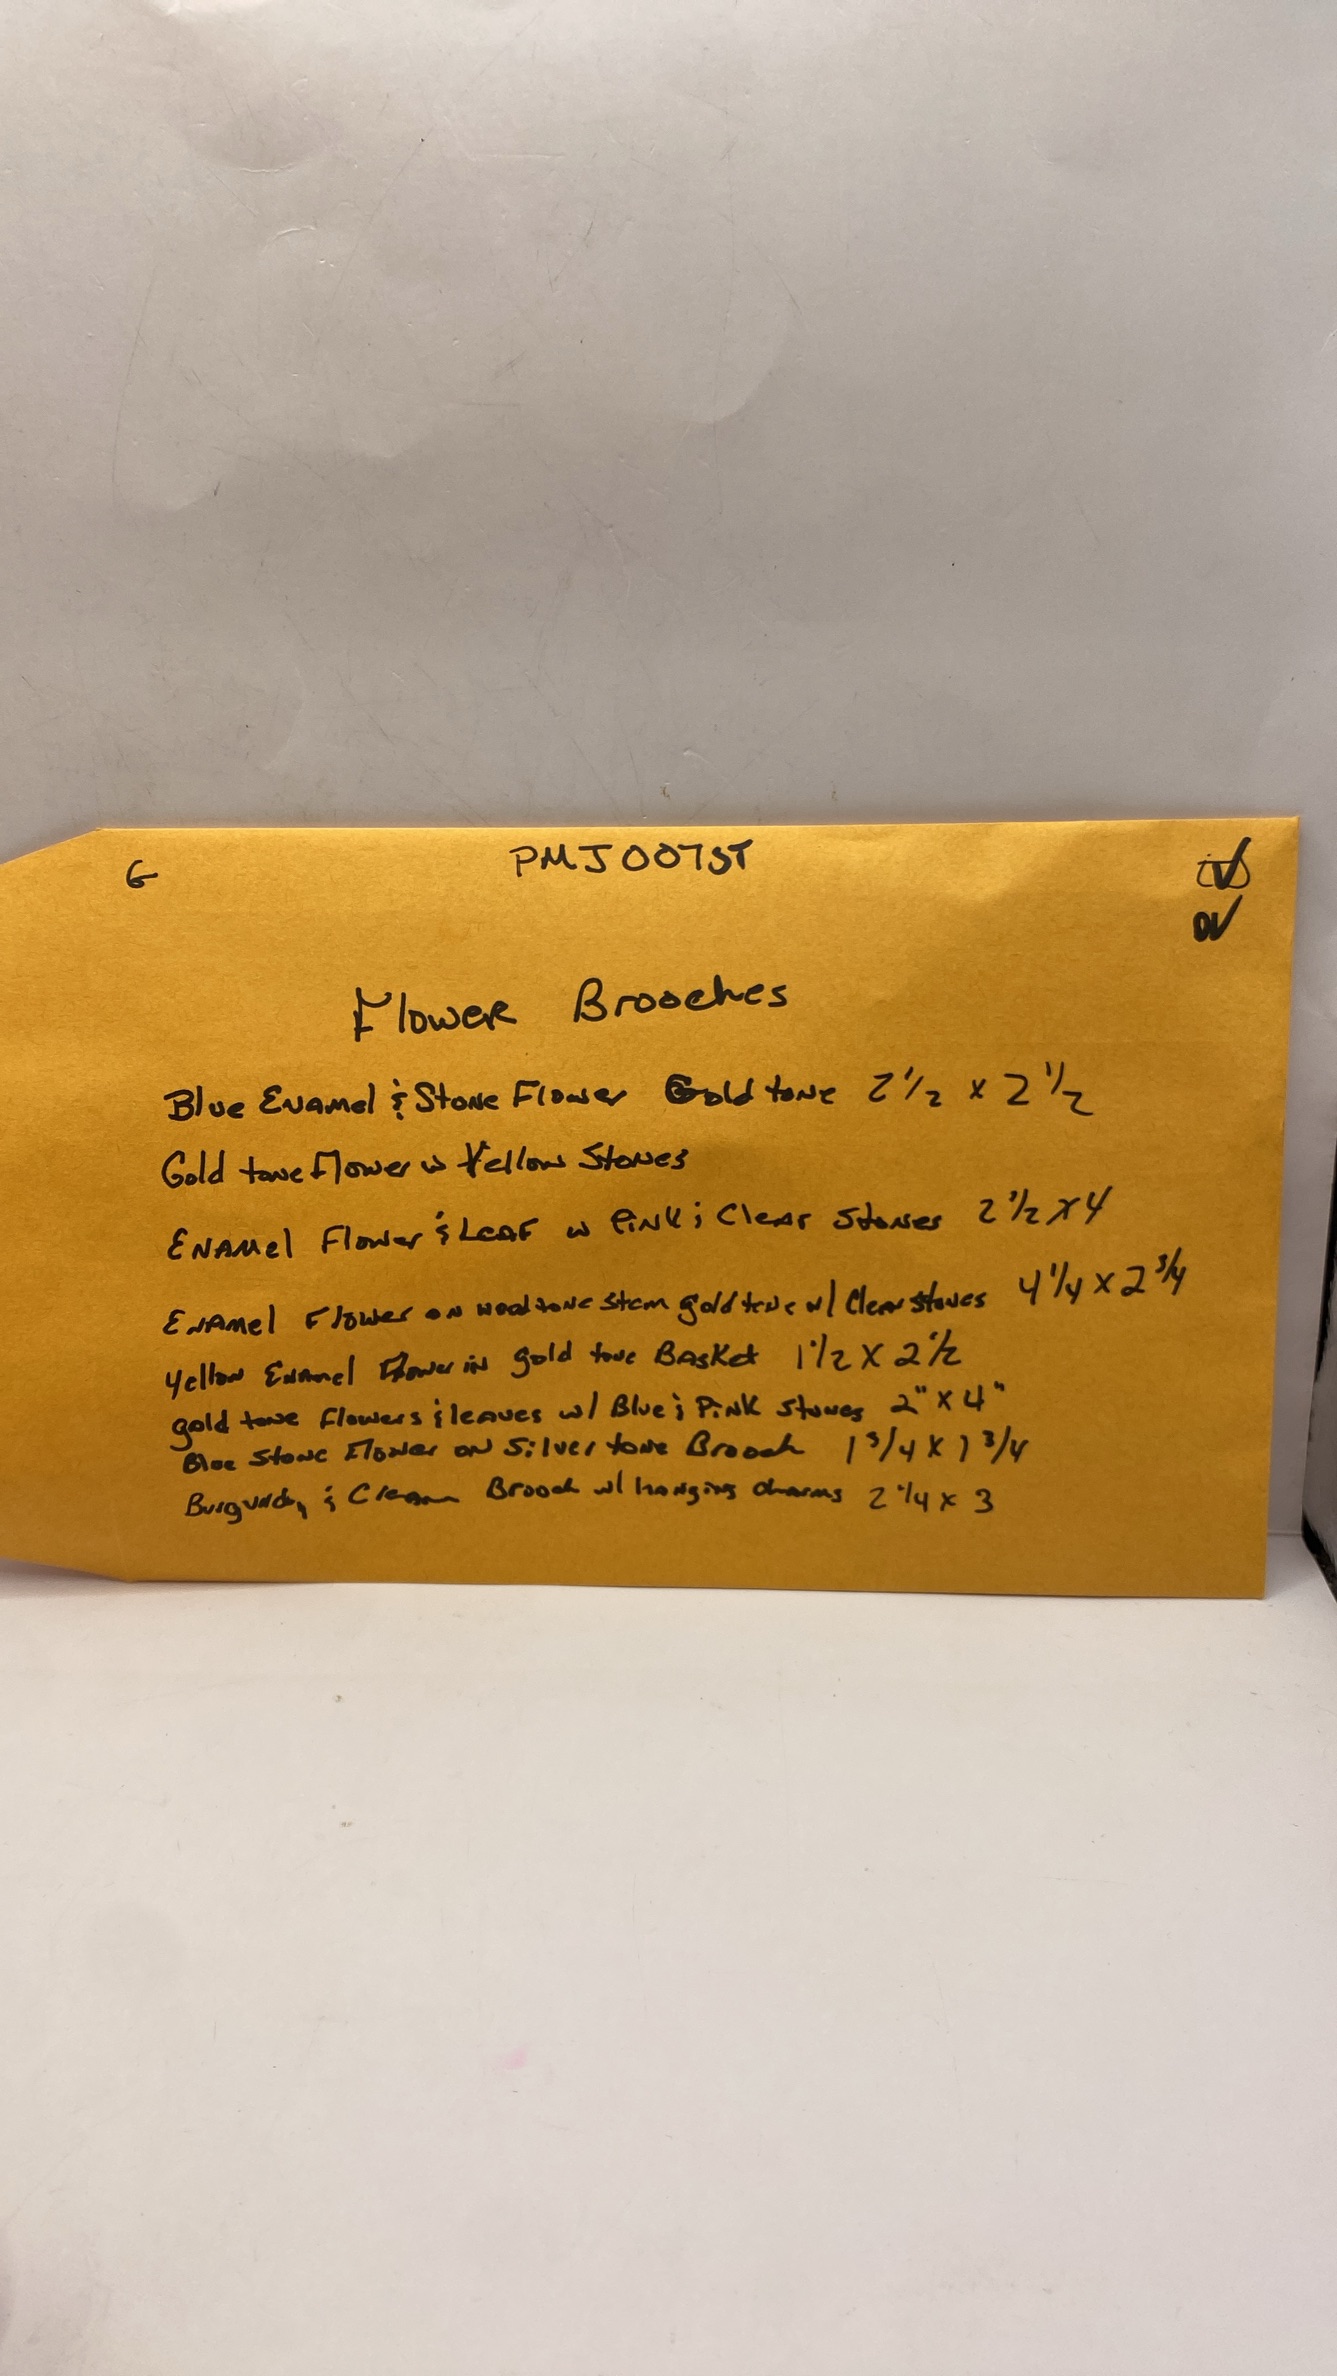 G
PMJ007ST
Flower Brooches
Blue Enamel & Stone Flower Gold tone 2 1/2 x 2 1/2
Gold tone Flower w Yellow Stones
Enamel Flower & Leaf w Pink & Clear Stones 2 1/2 x 4
Enamel Flower on woodtone stem gold tone w/ Clear Stones 4 1/4 x 2 3/4
Yellow Enamel Flower in gold tone Basket 1 1/2 x 2 1/2
gold tone flowers & leaves w/ Blue & Pink stones 2" x 4"
Blue Stone Flower on Silver tone Brooch 1 3/4 x 1 3/4
Burgundy & Cream Brooch w/ hanging charms 2 1/4 x 3